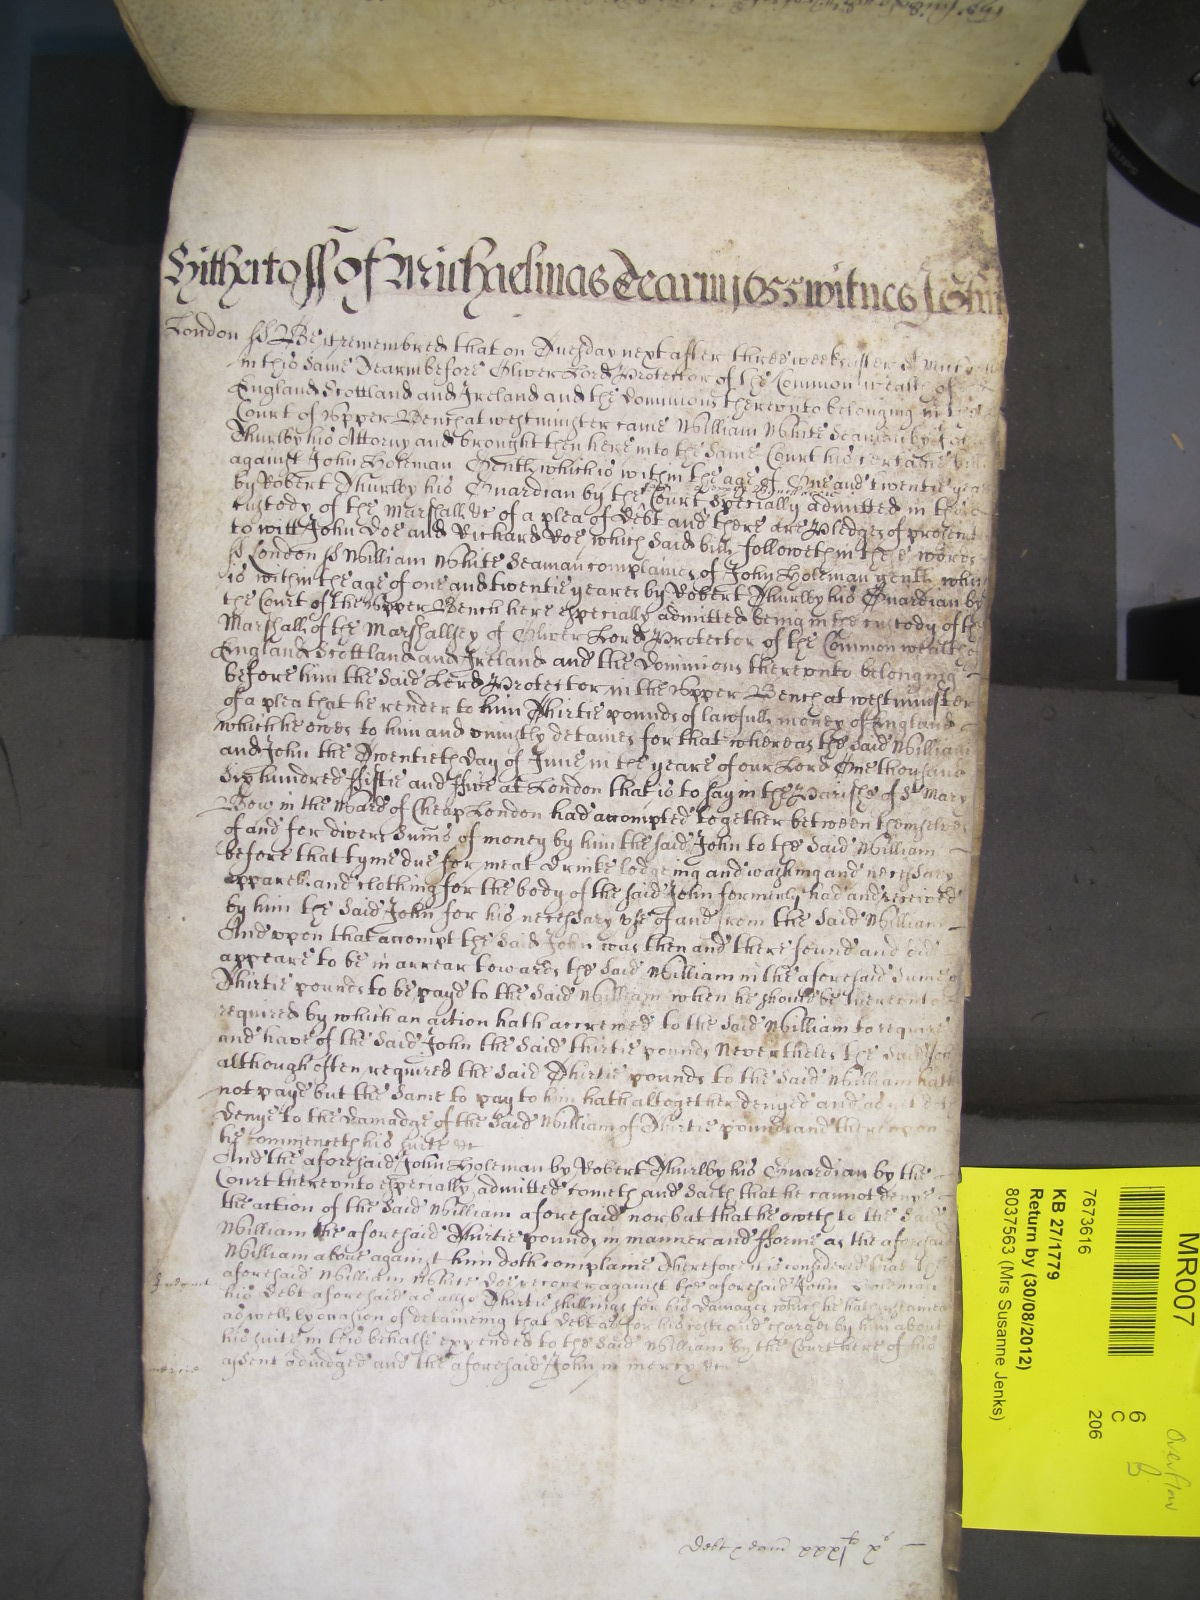 Hitherto ss of Michaelmas Tearm 1655 witnes John
London ss Be it remembred that on Tuesday next after three weekes after St Michael
in this same Tearm before Oliver Lord Protector of the Common wealth of
England Scottland and Ireland and the dominions thereunto belonging in the
Court of Upper Bench at westminster came William White Seaman by
Thurlby his Attorny and brought then here into the same Court his certaine bill
against John Holeman Gentl which is within the age of One and twentie yeares
by Robert Thurlby his Guardian by the Court specially admitted in the
custody of the Marshall &c of a plea of debt and there are Pledges of prosecut
to witt John Doe and Richard Roe which said bill followeth in these words
ss London ss William White Seaman complaines of John Holeman gentl which
is within the age of one and twentie yeares by Robert Thurlby his Guardian by
the Court of the Upper Bench here especially admitted being in the custody of the
Marshall of the Marshallsey of Oliver Lord Protector of the Common wealth of
England Scottland and Ireland and the dominions thereunto belonging
before him the said Lord Protector in the Upper Bench at westminster
of a plea that he render to him Thirtie pounds of lawfull money of England
which he owes to him and uniustly detaines for that whereas the said William
and John the Twentieth day of June in the yeare of our Lord One thousand
Six hundred ffiftie and ffive at London that is to say in the Parishe of St Mary
Bow in the Ward of Cheap London had accompted together between themselves
of and for divers Sums of money by him the said John to the said William
before that tyme due for meat drinke lodgeing and washing and necessary
apparell and clothing for the body of the said John formerly had and received
by him the said John for his necessary use of and from the said William
And upon that accompt the said John was then and there found and did
appeare to be in arrear towards the said William in the aforesaid Sume of
Thirtie pounds to be payd to the said William when he should be thereunto
required by which an action hath accrewed to the said William to require
and have of the said John the said thirtie pounds Nevertheles the said John
although often required the said Thirtie pounds to the said William hath
not payd but the same to pay to him hath altogether denyed and as yet doth
denye to the damadge of the said William of Thirtie pounds and thereupon
he commenceth his suite &c
And the aforesaid John Holeman by Robert Thurlby his Guardian by the
Court thereunto especially admitted cometh and saith that he cannot denye
the action of the said William aforesaid nor but that he oweth to the said
William the aforesaid Thirtie pounds in manner and fforme as the aforesaid
William above against him doth complaine Therefore it is considered that the
Judgment aforesaid William White doe recover against the aforesaid John Holeman
his debt aforesaid as also Thirtie shillings for his damages which he hath sustained
as well by occasion of detaineing that debt as for his costs and charges by him about
his suite in this behalfe expended to the said William by the Court here of his
mercie assent adiudged and the aforesaid John in mercy &c
Debt & dam xxxjli xs
MR007
6
C
206
7673616
KB 27/1779
Return by (30/08/2012)
8037563 (Mrs Susanne Jenks)
Overflow
B
PHILIPS